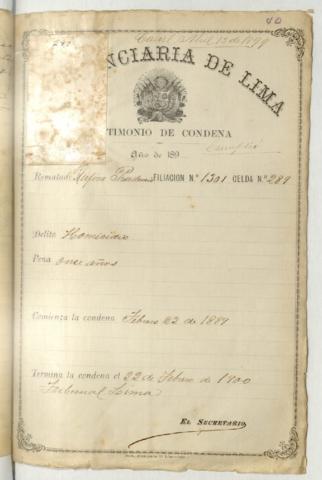 40
Abril 13 de 1899
NCIARIA DE LIMA
TIMONIO DE CONDENA
Año de 189
Cumplió
Rematado Rufino FILIACION N.º 1301 CELDA N.º 289
Delito Homicidio
Pena once años
Comienza la condena Febrero 22 de 1889
Termina la condena el 22 de Febrero de 1900
Tribunal Lima
EL SECRETARIO